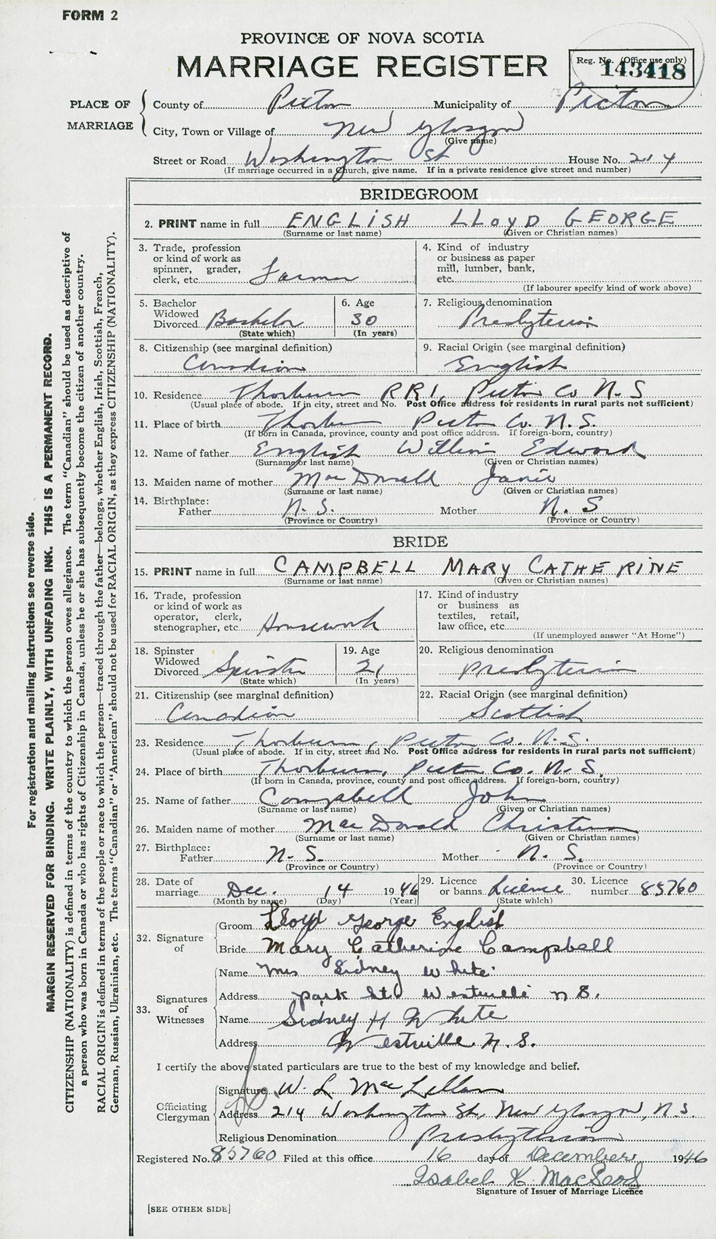 FORM 2
PROVINCE OF NOVA SCOTIA
MARRIAGE REGISTER
Reg. No. (Office use only)
143418
PLACE OF MARRIAGE
County of Pictou Municipality of Pictou
City, Town or Village of New Glasgow
(Give name)
Street or Road Washington St House No. 214
(If marriage occurred in a church, give name. If in a private residence give street and number)
BRIDEGROOM
2. PRINT name in full ENGLISH LLOYD GEORGE
(Surname or last name) (Given or Christian names)
3. Trade, profession or kind of work as spinner, grader, clerk, etc. Farmer
4. Kind of industry or business as paper mill, lumber, bank, etc.
(If labourer specify kind of work above)
5. Bachelor Widowed Divorced Bachelor
(State which)
6. Age 30
(In years)
7. Religious denomination
Presbyterian
8. Citizenship (see marginal definition)
Canadian
9. Racial Origin (see marginal definition)
English
10. Residence Thorburn RR1, Pictou Co N.S
(Usual place of abode. If in city, street and No. Post Office address for residents in rural parts not sufficient)
11. Place of birth Thorburn Pictou Co. N.S.
(If born in Canada, province, county and post office address. If foreign-born, country)
12. Name of father English William Edward
(Surname or last name) (Given or Christian names)
13. Maiden name of mother MacDonald Janie
(Surname or last name) (Given or Christian names)
14. Birthplace: Father N.S. Mother N.S
(Province or Country) (Province or Country)
BRIDE
15. PRINT name in full CAMPBELL MARY CATHERINE
(Surname or last name) (Given or Christian names)
16. Trade, profession or kind of work as operator, clerk, stenographer, etc Housework
17. Kind of industry or business as textiles, retail, law office, etc.
(If unemployed answer "At Home")
18. Spinster Widowed Divorced Spinster
(State which)
19. Age 21
(In years)
20. Religious denomination
Presbyterian
21. Citizenship (see marginal definition)
Canadian
22. Racial Origin (see marginal definition)
Scottish
23. Residence Thorburn, Pictou Co. N.S.
(Usual place of abode. If in city, street and No. Post Office address for residents in rural parts not sufficient)
24. Place of birth Thorburn, Pictou Co. N.S.
(If born in Canada, province, county and post office address. If foreign-born, country)
25. Name of father Campbell John
(Surname or last name) (Given or Christian names)
26. Maiden name of mother MacDonald
(Surname or last name) (Given or Christian names)
27. Birthplace: Father N.S. Mother N.S.
(Province or Country) (Province or Country)
28. Date of marriage Dec. 14 1946
(Month by name) (Day) (Year)
29. Licence or banns Licence
(State which)
30. Licence number 85760
32. Signature of
Groom Lloyd George English
Bride Mary Catherine Campbell
33. Signatures of Witnesses
Name Mrs Sidney White
Address Park St. Westville N.S.
Name Sidney H White
Address Westville N.S.
I certify the above stated particulars are to the best of my knowledge and belief.
Officiating Clergyman
Signature W. L. MacLellan
Address 214 Washington St., New Glasgow, N.S
Religious Denomination Presbyterian
Registered No. 85760 Filed at this office 16 day of December 1946
Isabel K MacLeod
Signature of Issuer of Marriage Licence
[SEE OTHER SIDE]
For registration and mailing instructions see reverse side.
MARGIN RESERVED FOR BINDING. WRITE PLAINLY, WITH UNFADING INK. THIS IS A PERMANENT RECORD.
CITIZENSHIP (NATIONALITY) is defined in terms of the country to which the person owes allegiance. The term "Canadian" should be used as descriptive of
a person who was born in Canada or who has rights of Citizenship in Canada, unless he or she has subsequently become the citizen of another country.
RACIAL ORIGIN is defined in terms of the people or race to which the person—traced through the father—belongs, whether English, Irish, Scottish, French,
German, Russian, Ukrainian, etc. The terms "Canadian" or "American" should not be used for RACIAL ORIGIN, as they express CITIZENSHIP (NATIONALITY).